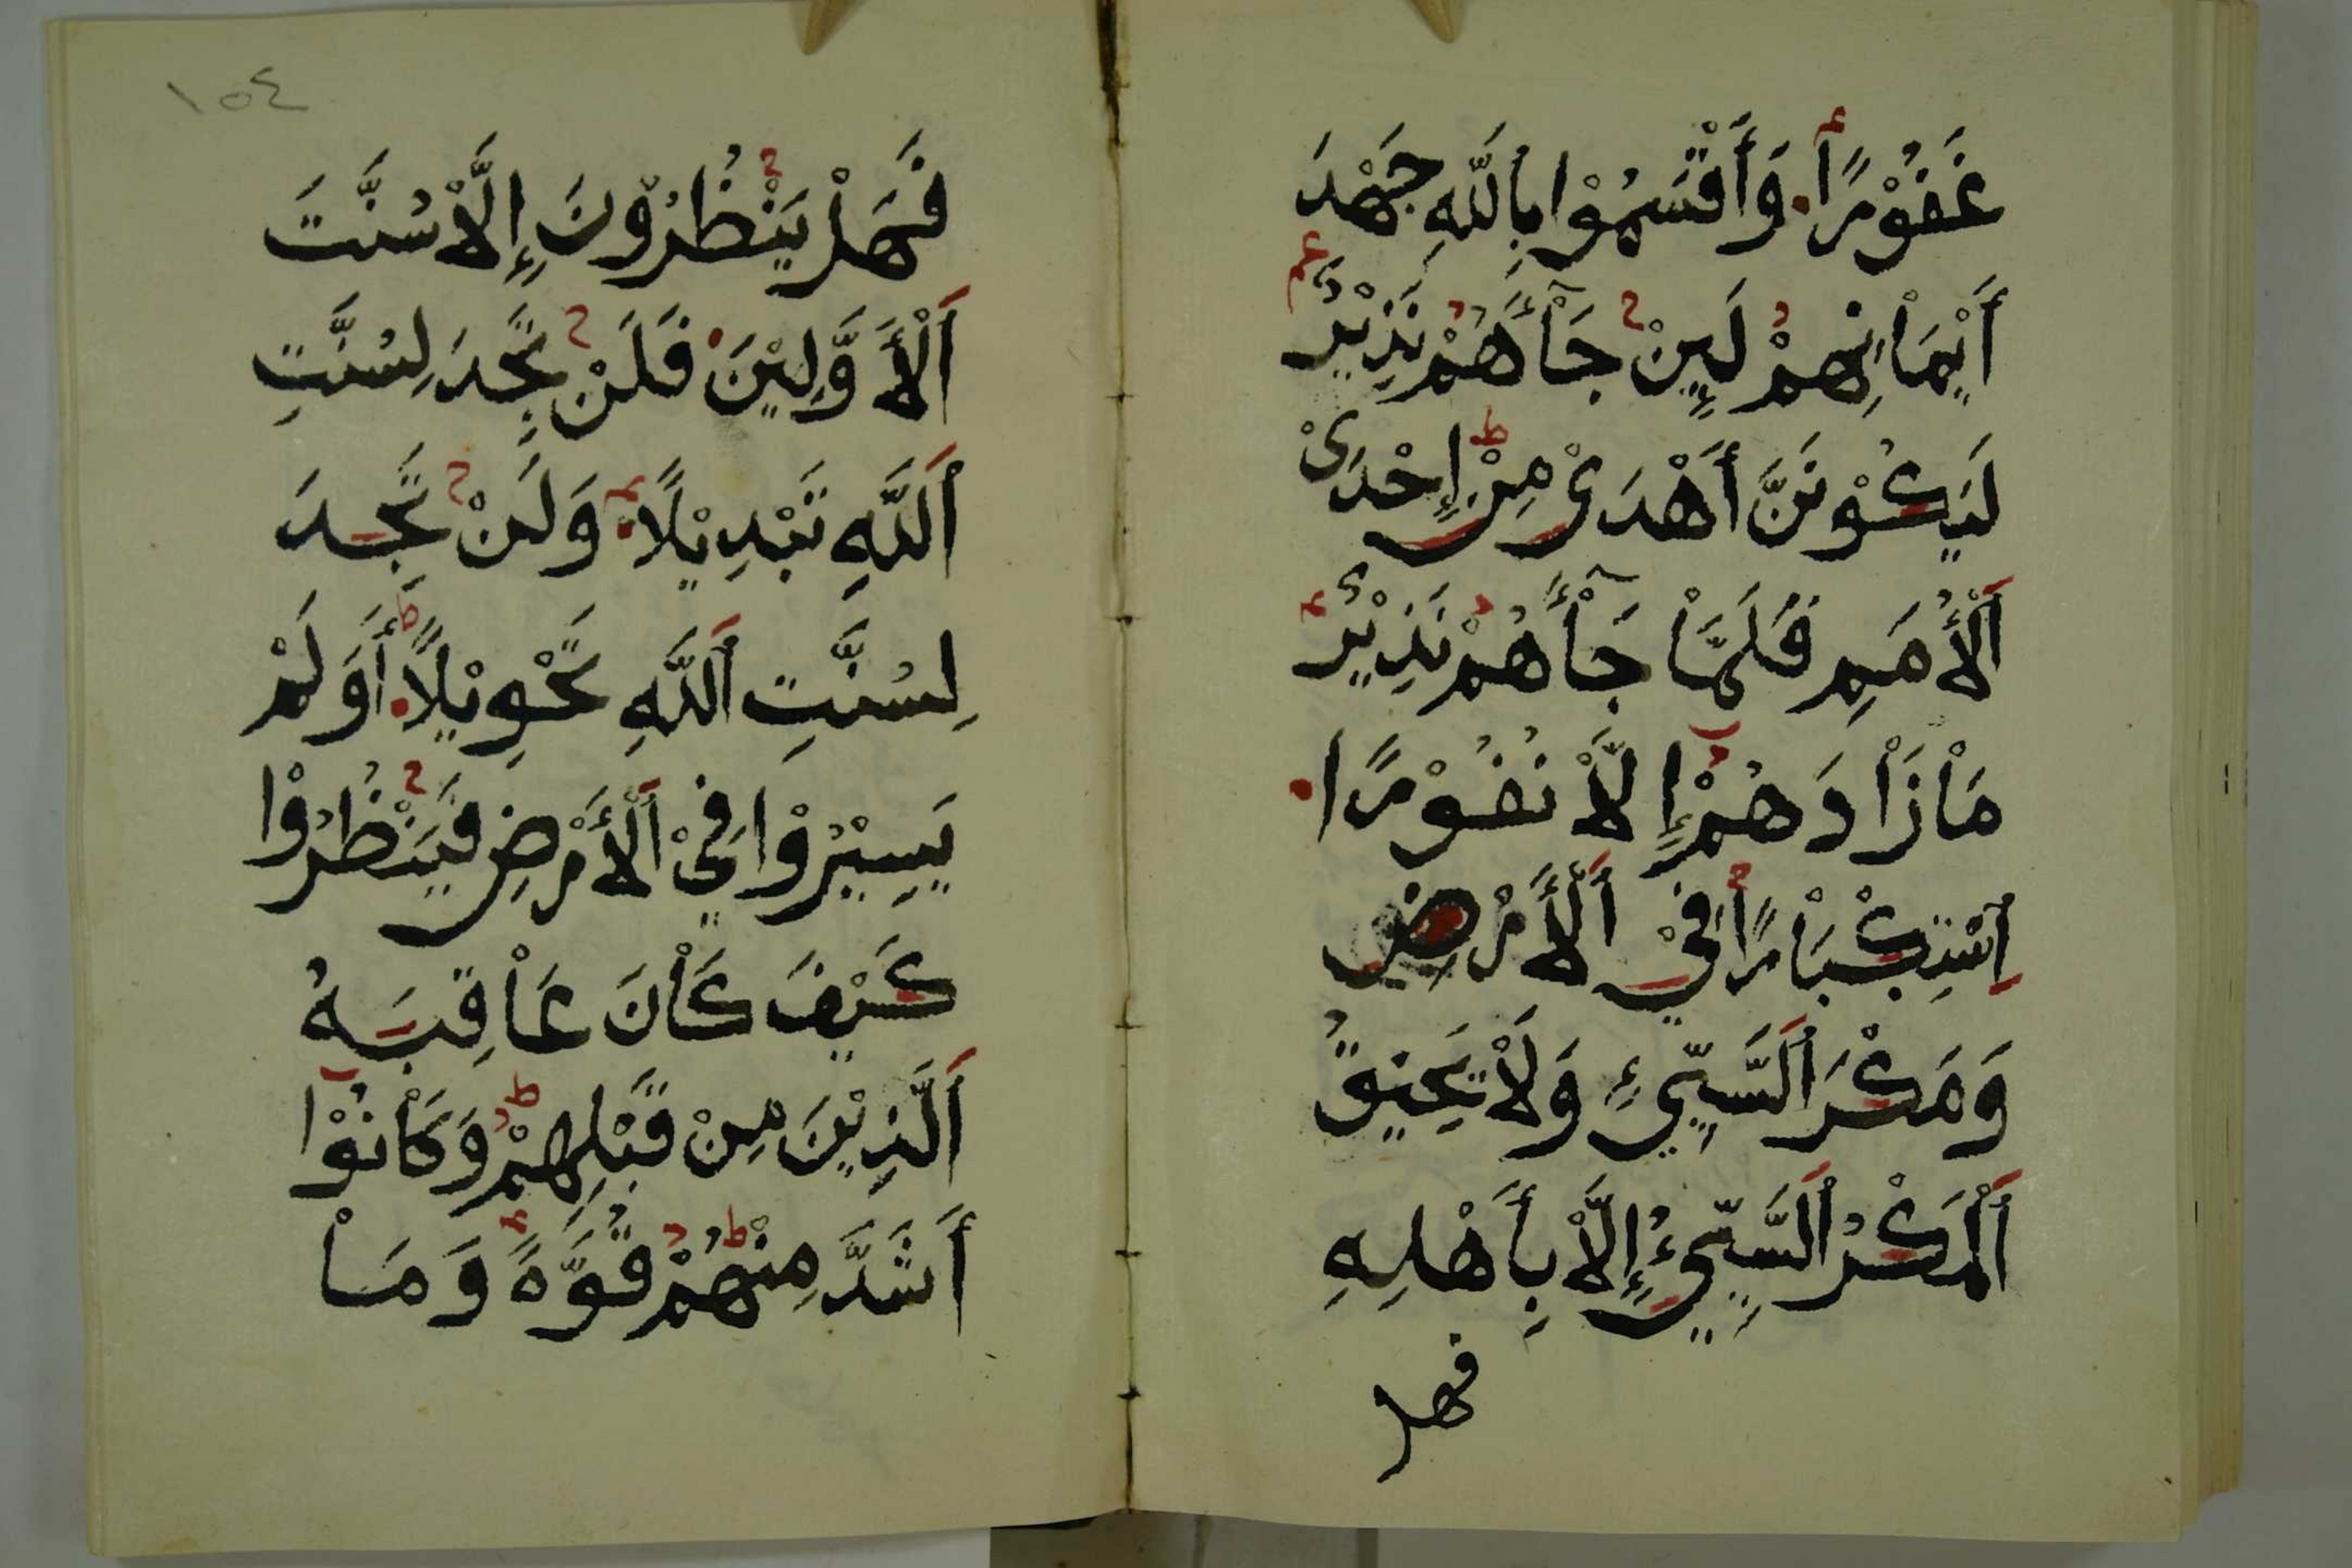 غَفُوْرًا وَأَقْسَمُوْا بِاللّٰهِ جَهْدَ
أَيْمَاْنِهِمْ لَىِٕنْ جَاْۤءَهُمْ نَذِيْرٌ
لَيَكُوْنُنَّ أَهْدَىْ مِنْ إِحْدَىْ
اَلْأُمَمِ فَلَمَّاْ جَاْۤءَهُمْ نَذِيْرٌ
مَاْ زَاْدَهُمْ إِلَّاْ نُفُوْرًا
اِسْتِكْبَاْرًا فِيْ اَلْأَرْضِ
وَمَكْرَ اَلسَّيِّيءِ وَلَاْ يَحِيْقُ
اَلْمَكْرُ اَلسَّيِّيءُ إِلَّاْ بِأَهْلِهِ
فهل
١٥٤
فَهَلْ يَنْظُرُوْنَ إِلَّاْ سُنَّتَ
اَلْأَوَّلِيْنَ فَلَنْ تَجِدَ لِسُنَّتِ
اَللَّهِ تَبْدِيْلًا وَلَنْ تَجِدَ
لِسُنَّتِ اَللَّهِ تَحْوِيْلًا أَوَلَمْ
يَسِيْرُوْا فِيْ اَلْأَرْضِ فَيَنْظُرُوْا
كَيْفَ كَاْنَ عَاْقِبَةُ
اَلَّذِيْنَ مِنْ قَبْلِهِمْ وَكَاْنُوْا
أَشَدَّ مِنْهُمْ قُوَّةً وَمَاْ